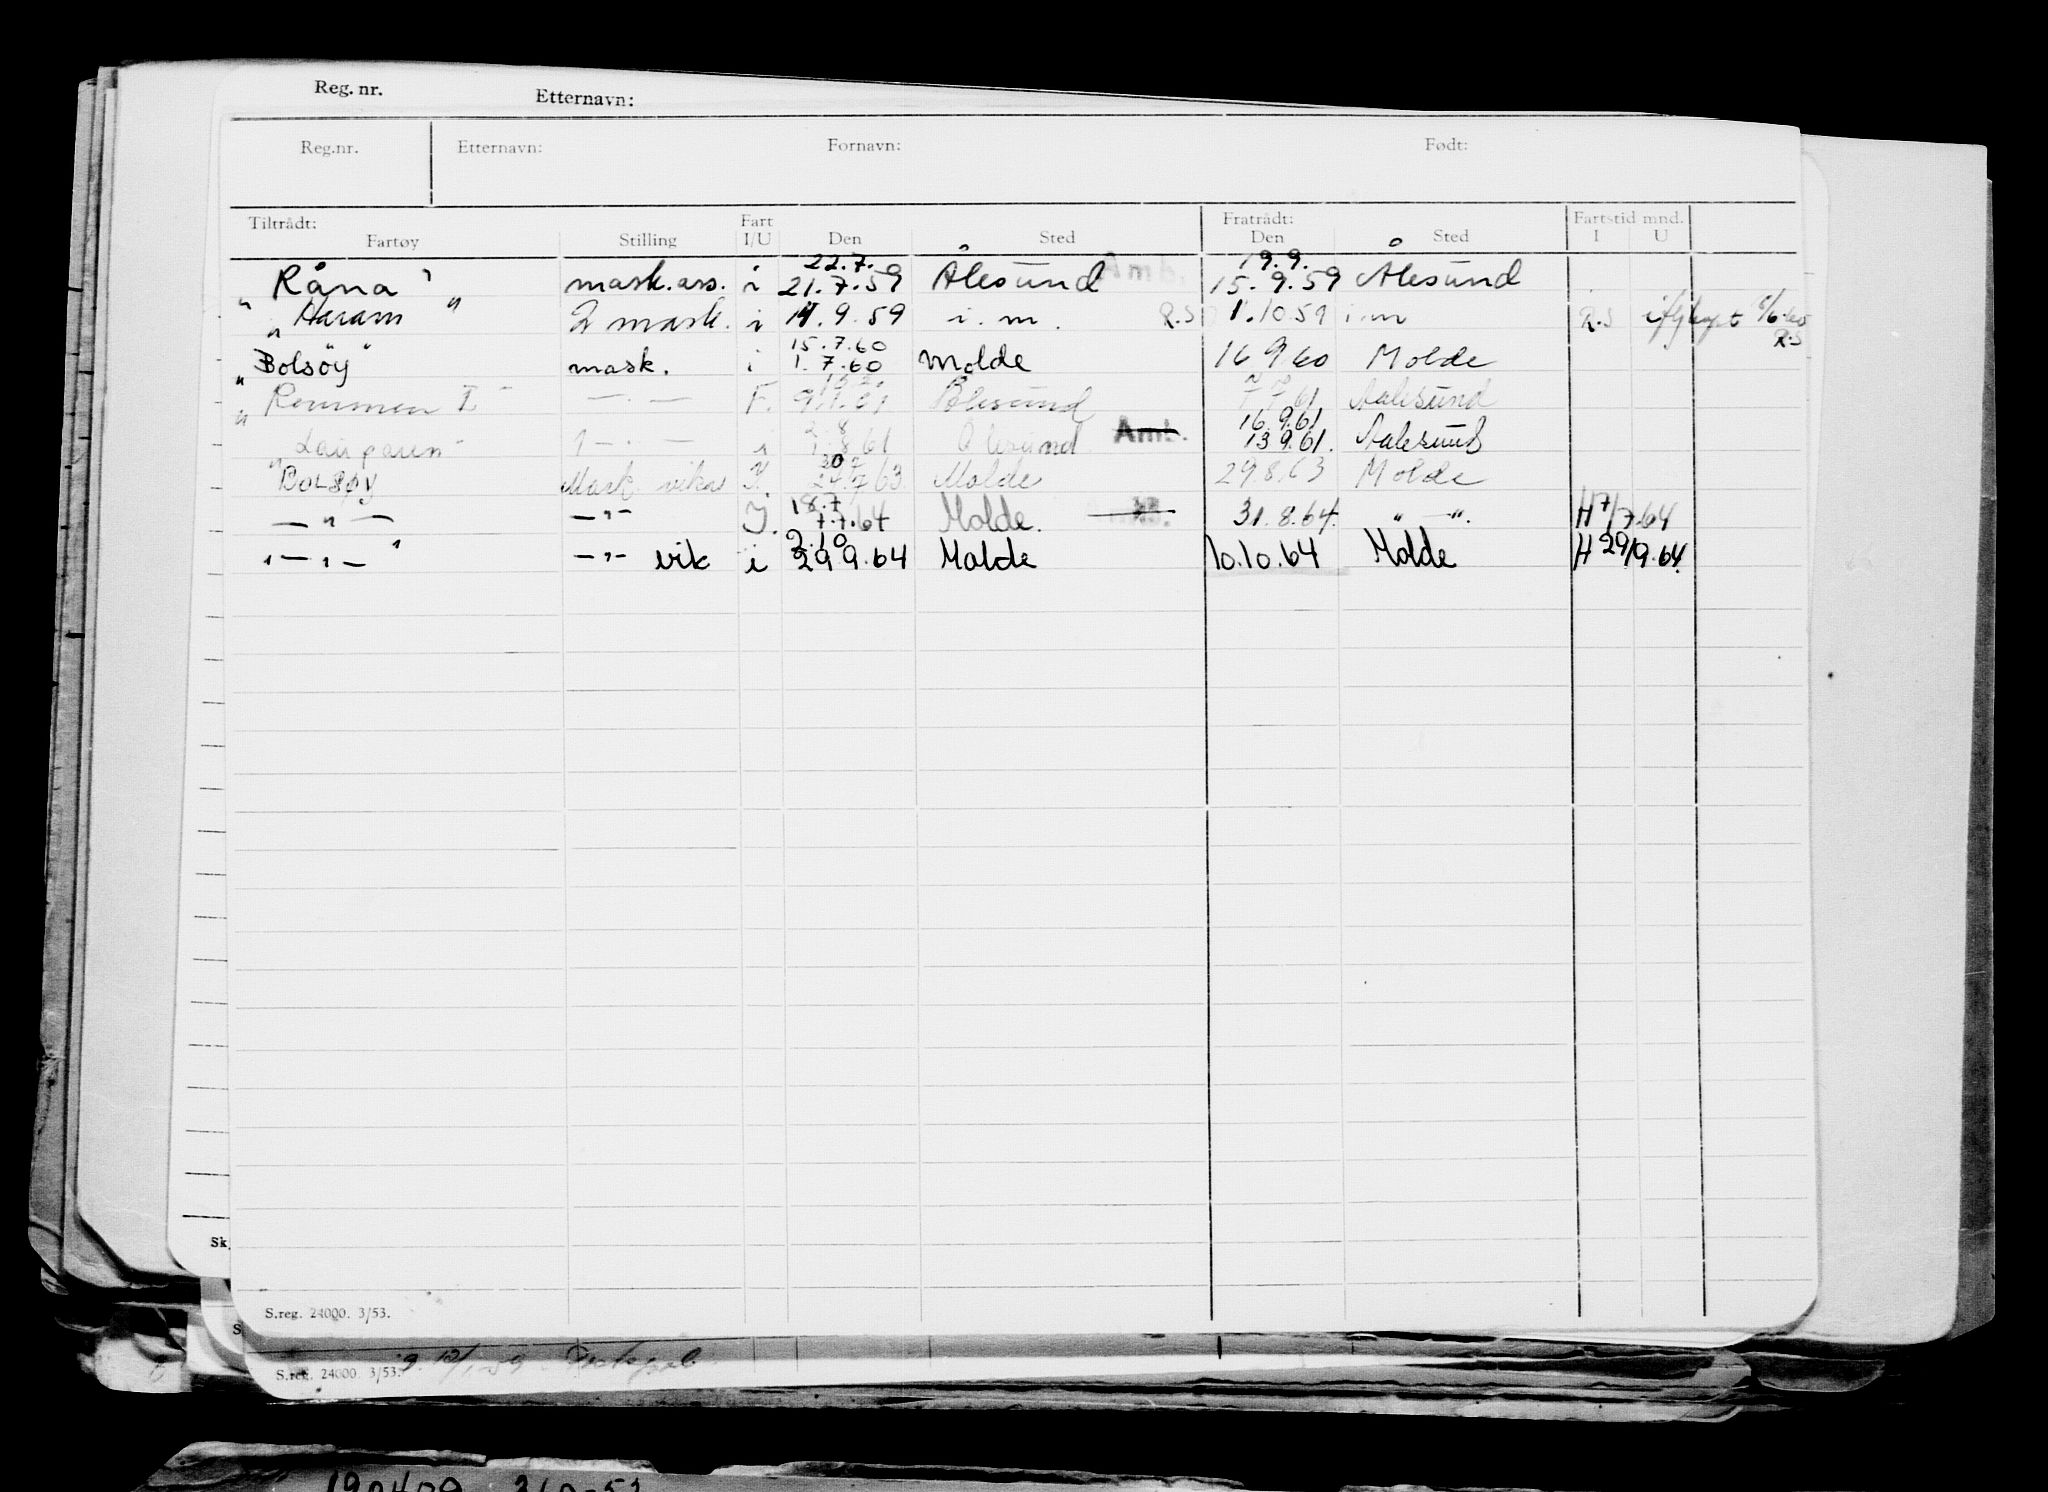 Reg. nr. Etternavn:
Reg.nr. Etternavn: Fornavn: Født:
Tiltrådt: Fart Fratrådt: Fartstid mnd.
Fartøy Stilling I/U Den Sted Den Sted I U
22.7. 19.9.
"Råna" mask.ass. i 21.7.59 Ålesund Amb. 15.9.59 Ålesund
"Haram" 2 mask. i 14.9.59 i.m. R.S 1.10.59 i.m R.S R.S
15.7.60
"Bolsöy" mask. i 1.7.60 Molde 16 9 60 Molde
"Remmen I" — . — F. Ålesund 7 7 61 Aalesund
2.8 16.9.61
1 — . — i 1.8.61 Ålesund Amb. 13 9.61. Aalesund
"BOLSØY Mask vikar 63 Molde 29 8.63 Molde
18.7
— " — — " — J. 7.7.64 Molde. 31.8.64. " — ". H 7/7.64
2.10
" — " — " — " — vik i 29 9.64 Molde 10.10.64 Molde H 29/9.64.
Sk.
S.reg. 24000. 3/53.
S
S.reg. 24000. 3/53. 9. 12/1-59